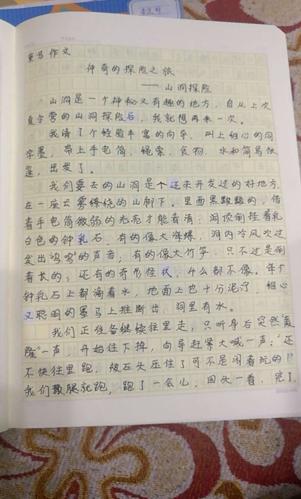 章节作文
神奇的探险之旅
——山洞探险
山洞是一个神秘又有趣的地方，自从上次
夏令营的山洞探险后，我就想再来一次。
我请了个经验丰富的向导，叫上细心的同
学墨，带上手电筒、绳索、食物、水和简易帐
篷，出发了。
我们要去的山洞是个还未开发过的好地方，
在一座云雾缭绕的山脚下。里面黑黢黢的，借
着手电筒微弱的光亮才能看清：洞顶倒挂着乳
白色的钟乳石，有的像大喇叭，洞内冷风吹过
发出呜呜的声音，有的像大竹笋，只不过是倒
着长的；还有的奇形怪状，什么都不像。每个
钟乳石上都滴着水，地面上也十分泥泞，细心
又聪明的墨马上推断出，洞里有水。
我们正准备继续往里走，只听身后突然“轰
隆”一声，开始往下掉，向导赶紧大喊一声：“还
不快往里跑，被石头压住了可不是闹着玩的！”
我们撒腿就跑，跑了一会儿，回头一看，完了